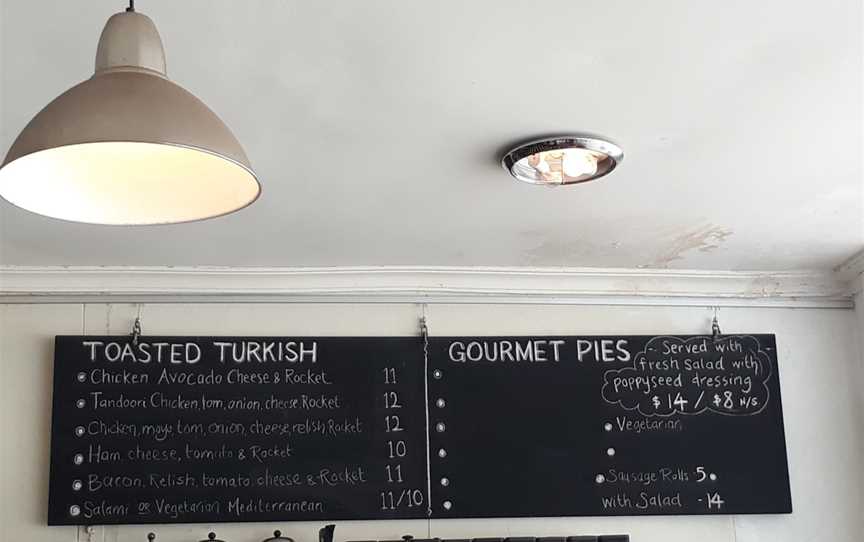 TOASTED TURKISH
Chicken Avocado Cheese & Rocket 11
Tandoori Chicken, tom, onion, cheese, Rocket 12
Chicken, mayo, tom, onion, cheese, relish, Rocket 12
Ham, cheese, tomato & Rocket 10
Bacon, Relish, tomato, cheese & Rocket 11
Salami or Vegetarian Mediterranean 11/10
GOURMET PIES
- Served with -
fresh Salad with
poppyseed dressing
$14 / $8 N/S
Vegetarian
Sausage Rolls 5
with Salad - 14